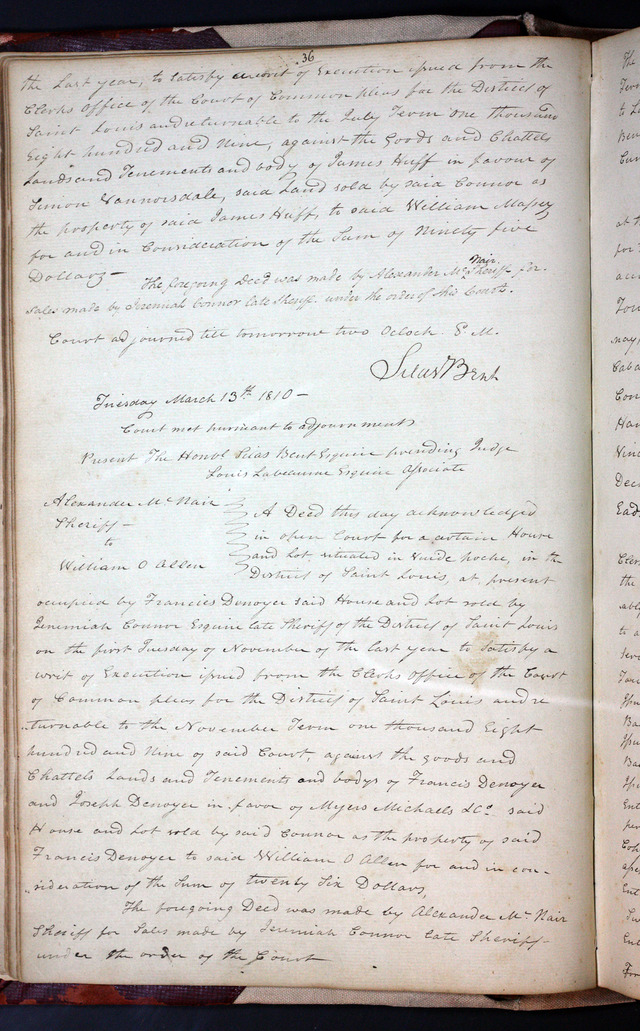 36
the Last year, to Satisfy a writ of Execution issued from the
Clerks Office of the Court of Common pleas for the District of
Saint Louis and returnable to the July Term one thousand
Eight hundred and Nine, against the Goods and Chattels
Lands and Tenements and body of James Huff in favour of
Simon Vannorsdale, said Land sold by said Connor as
the property of said James Huff, to said William Massey
for and in Consideration of the Sum of Ninety five
Dollars —
The foregoing Deed was made by Alexander Mc Nair Sheriff for
sales made by Jeremiah Connor late Sheriff under the order of this Court.
Court adjourned till tomorrow two Oclock P. M.
Silas Bent
Tuesday March 13th 1810 —
Court met pursuant to adjournment
Present The Honbl Silas Bent Esquire presiding Judge
Louis Labeaume Esquire Associate
Alexander Mc Nair
Sheriff —
to
William O Allen
A Deed this day acknowledged
in open Court for a certain House
and Lot situated in Vuide poche, in the
District of Saint Louis, at present
occupied by Francies Denoyer said House and Lot sold by
Jeremiah Connor Esquire late Sheriff of the District of Saint Louis
on the first Tuesday of November of the last year to Satisfy a
writ of Execution issued from the Clerks Office of the Court
of Common pleas for the District of Saint Louis and re
turnable to the November Term one thousand Eight
hundred and Nine of said Court, against the goods and
Chattels Lands and Tenements and bodys of Francis Denoyer
and Joseph Denoyer in favor of Myers Michaels & Co. said
House and Lot sold by said Connor as the property of said
Francis Denoyer to said William O Allen for and in con-
sideration of the Sum of twenty Six Dollars,
The foregoing Deed was made by Alexander Mc Nair
Sheriff for Sales made by Jeremiah Connor late Sheriff
under the order of the Court